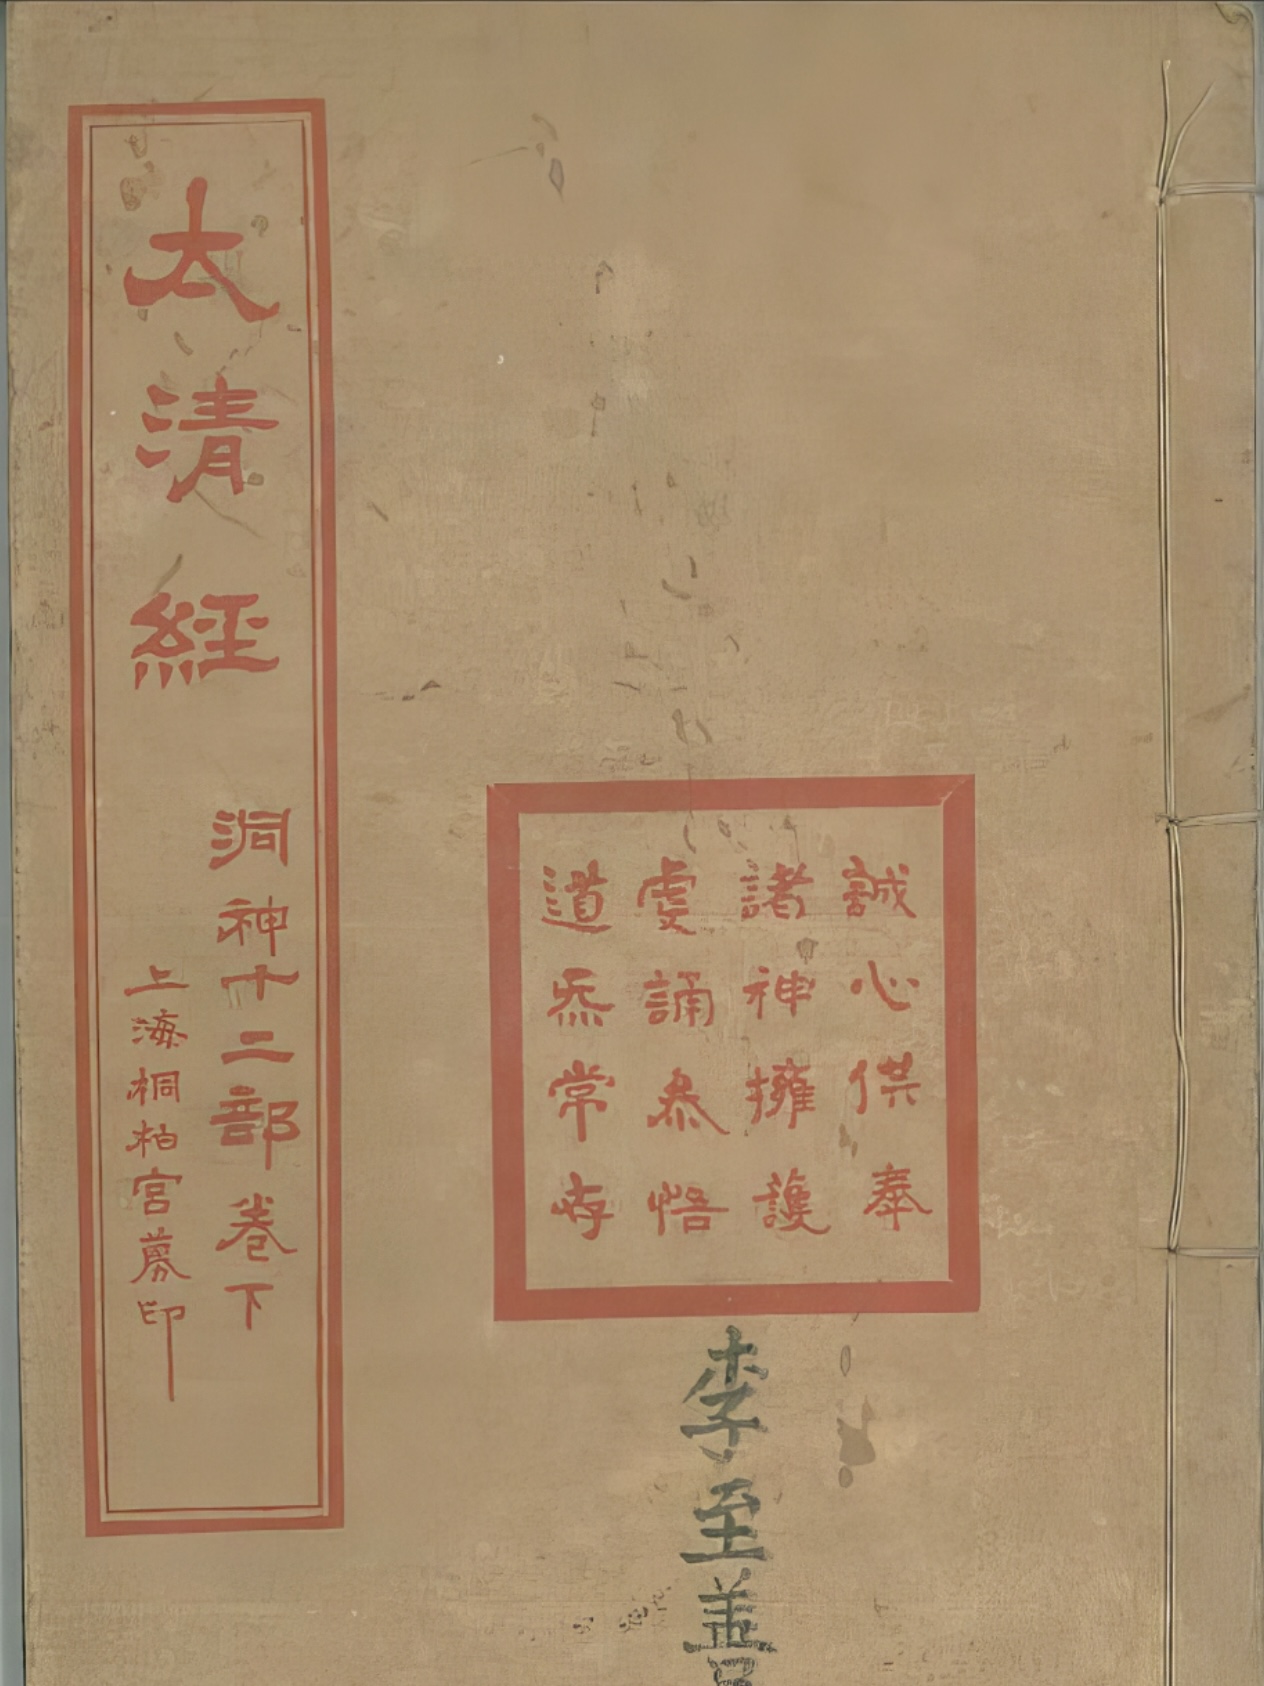 誠心供奉
諸神擁護
虔誦叅悟
道炁常存
太清經
洞神十二部卷下
上海桐柏宮募印
李至善